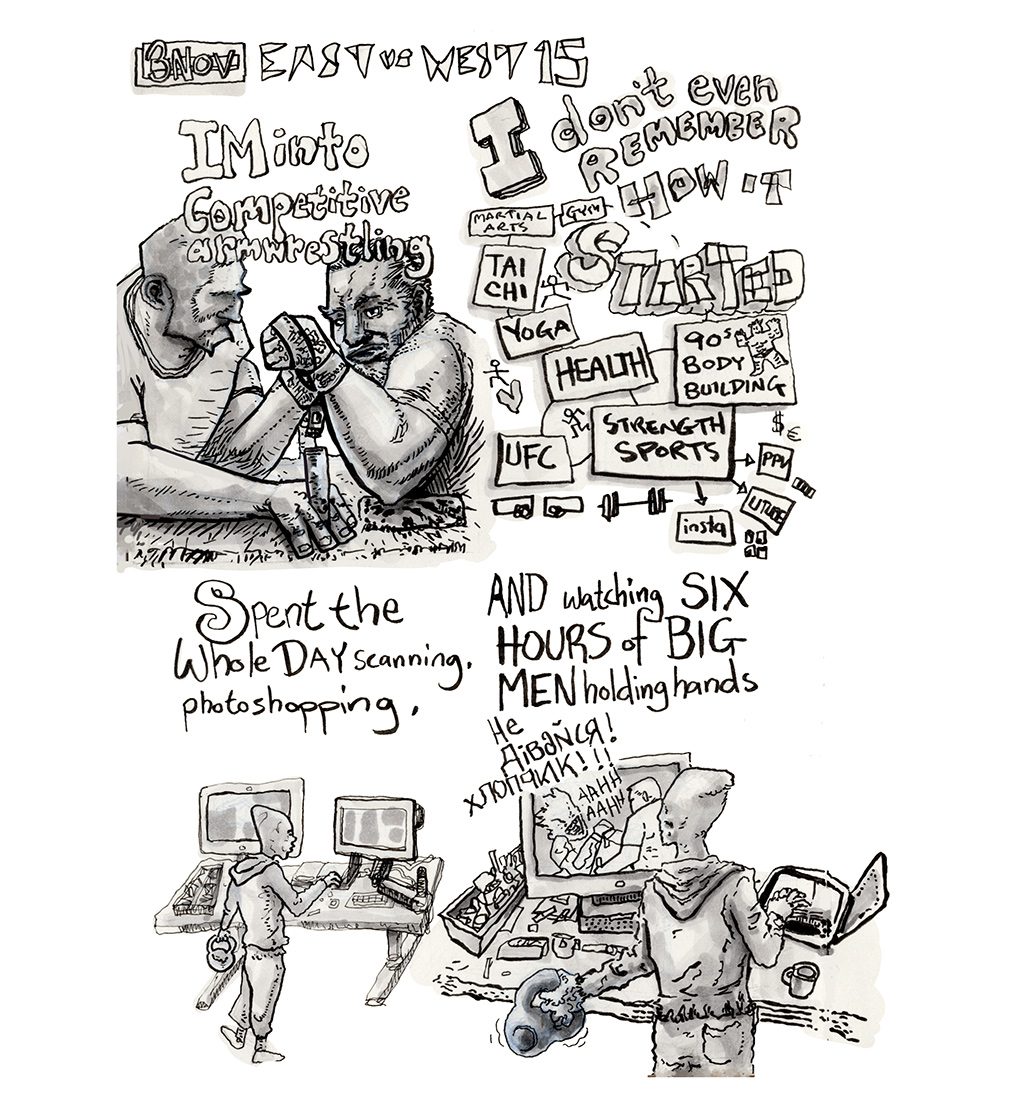 3NOV EAST vs WEST 15
IM into
Competitive
armwrestling
I don't even
REMEMBER
HOW IT
STARTED
MARTIAL
ARTS
GYM
TAI
CHI
YOGA
HEALTH
90s
BODY
BUILDING
STRENGTH
SPORTS
UFC
$ €
PPV
UTUBE
insta
Spent the
Whole DAY scanning,
photoshopping,
AND watching SIX
HOURS of BIG
MEN holding hands
Не
дівайся!
хлопчик!!!
AAHH
AAHH